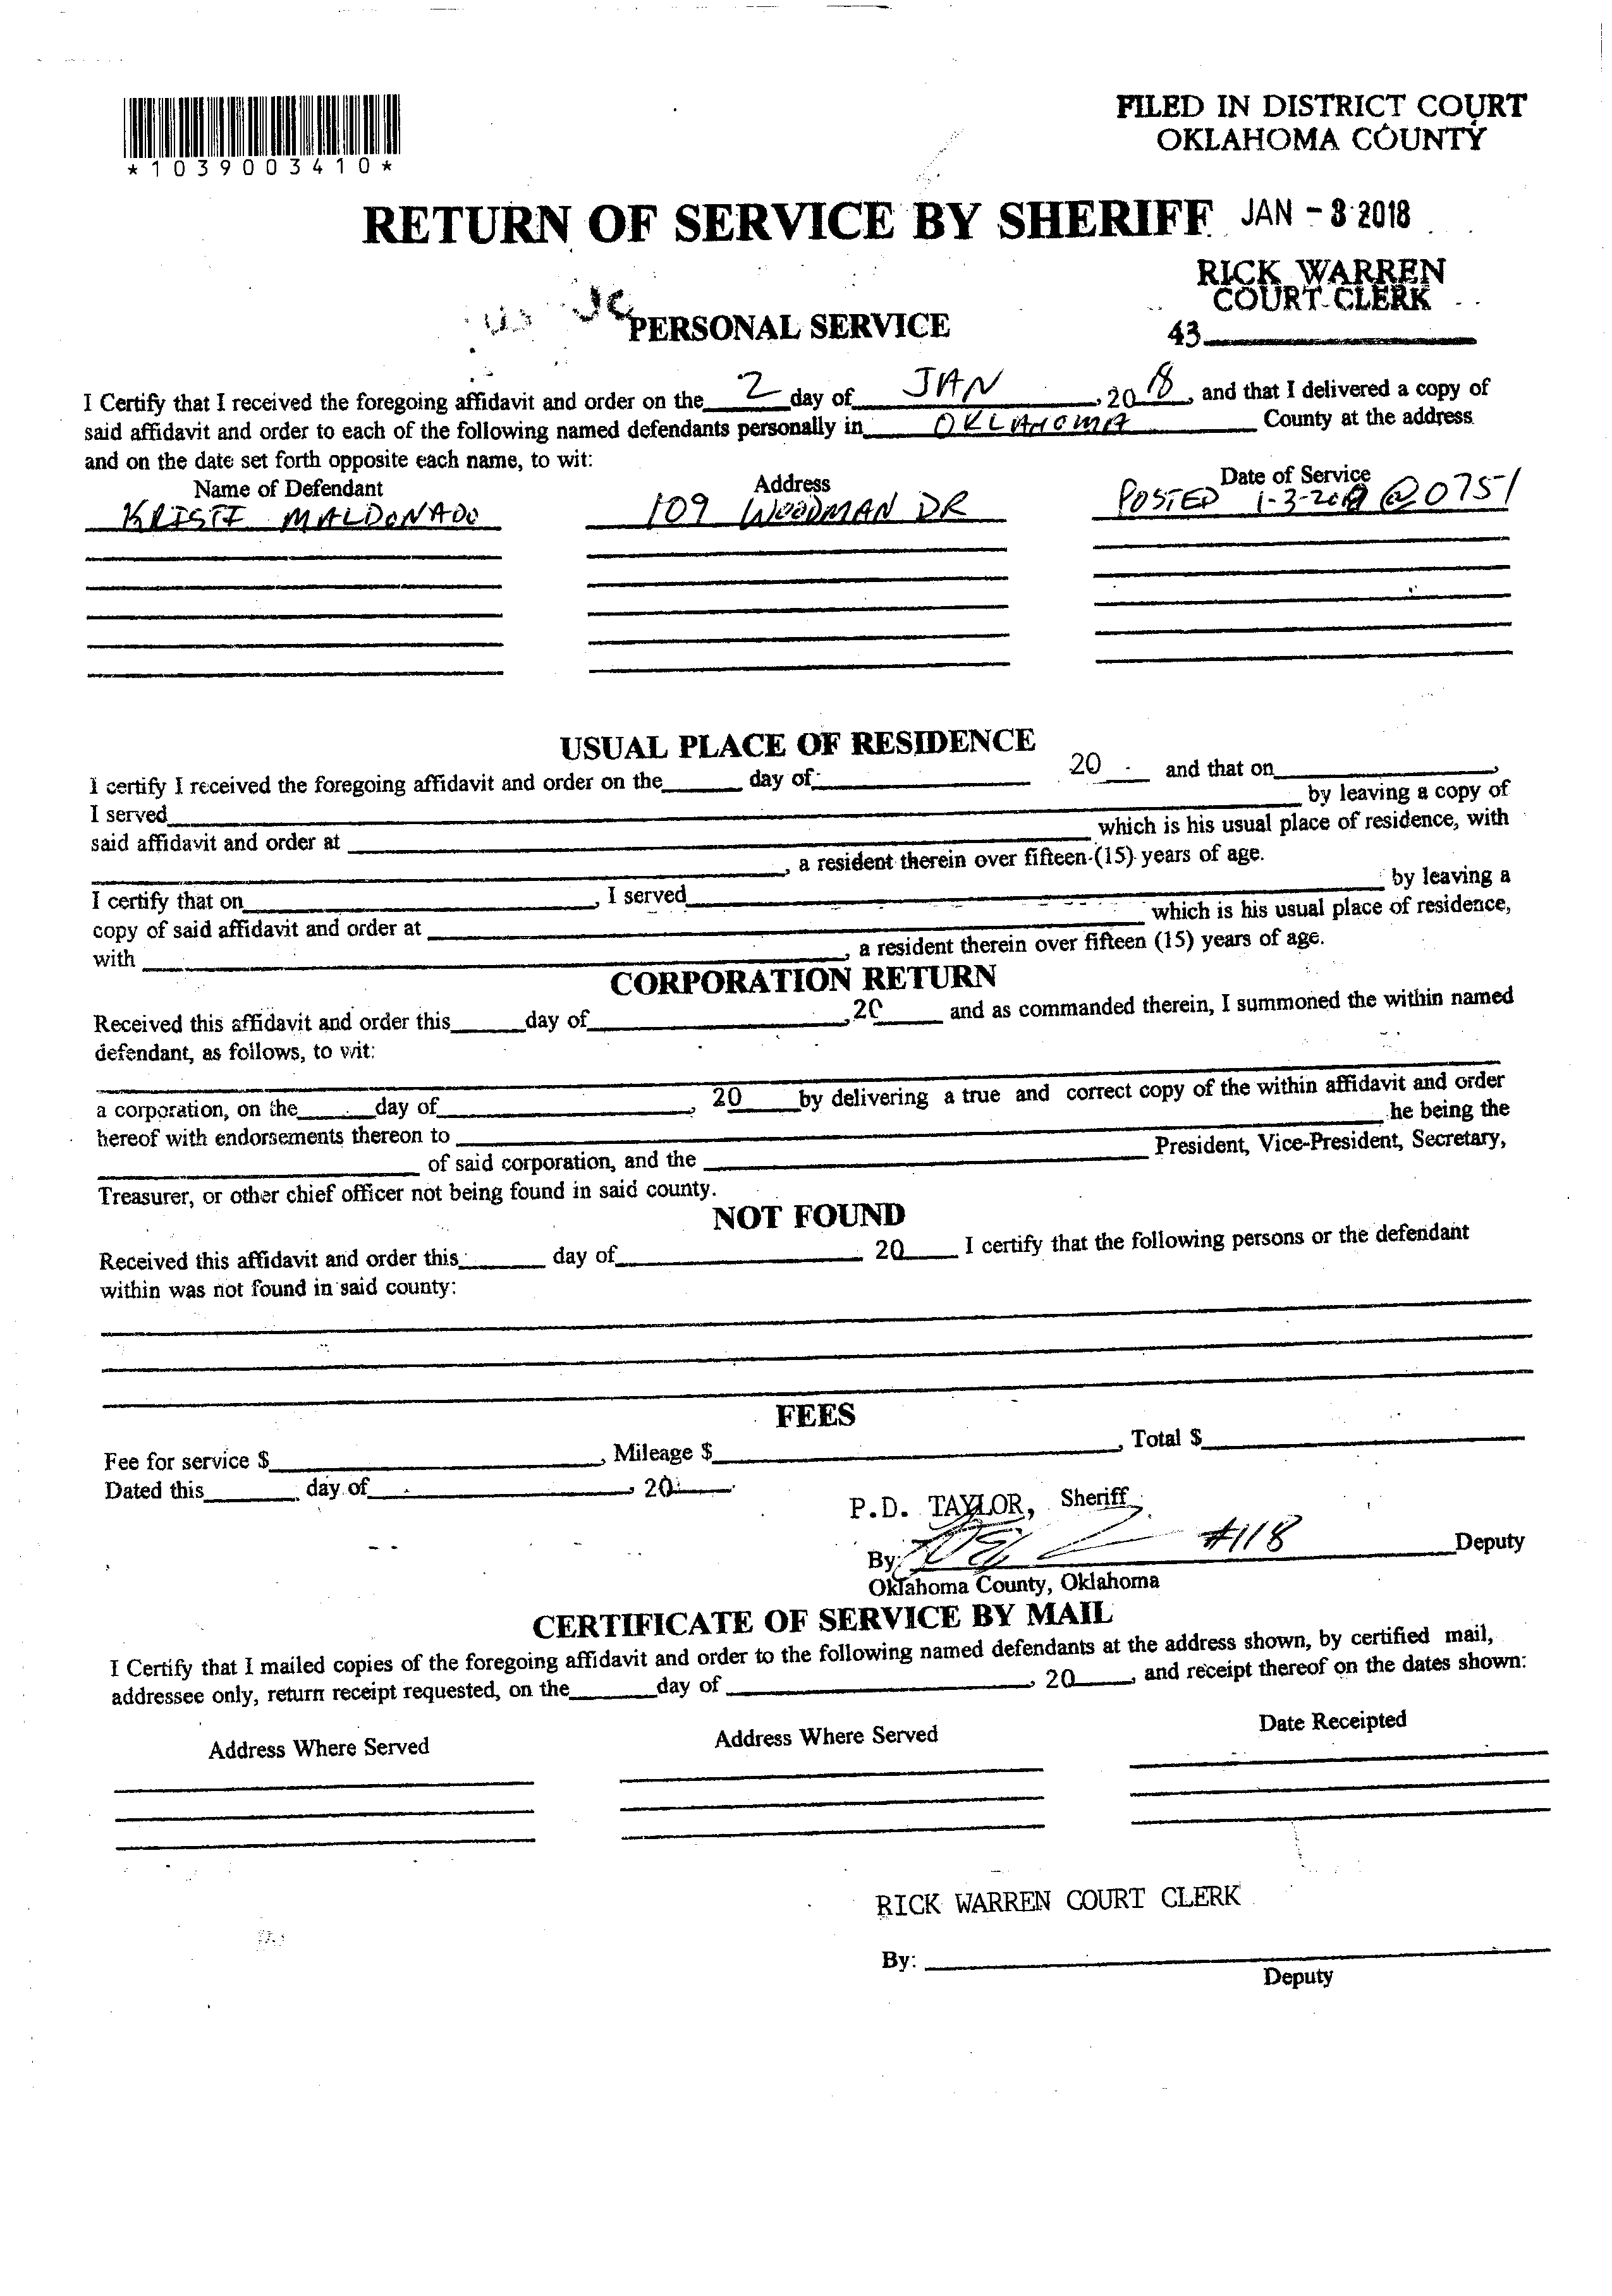 FILED IN DISTRICT COURT
OKLAHOMA COUNTY
*1039003410*
RETURN OF SERVICE BY SHERIFF JAN - 3 2018
RICK WARREN
COURT CLERK
PERSONAL SERVICE
43
I Certify that I received the foregoing affidavit and order on the 2 day of JAN, 2018, and that I delivered a copy of
said affidavit and order to each of the following named defendants personally in OKLAHOMA County at the address
and on the date set forth opposite each name, to wit:
Name of Defendant Address Date of Service
KRISTI MALDONADO 109 WOODMAN DR POSTED 1-3-2018 @ 0751
USUAL PLACE OF RESIDENCE
I certify I received the foregoing affidavit and order on the day of 20 and that on,
I served by leaving a copy of
said affidavit and order at which is his usual place of residence, with
, a resident therein over fifteen (15) years of age.
I certify that on, I served by leaving a
copy of said affidavit and order at which is his usual place of residence,
with, a resident therein over fifteen (15) years of age.
CORPORATION RETURN
Received this affidavit and order this day of, 20 and as commanded therein, I summoned the within named
defendant, as follows, to wit:
a corporation, on the day of, 20 by delivering a true and correct copy of the within affidavit and order
hereof with endorsements thereon to he being the
of said corporation, and the President, Vice-President, Secretary,
Treasurer, or other chief officer not being found in said county.
NOT FOUND
Received this affidavit and order this day of 20 I certify that the following persons or the defendant
within was not found in said county:
FEES
Fee for service $, Mileage $, Total $
Dated this day of, 20
P.D. TAYLOR, Sheriff
By: #118 Deputy
Oklahoma County, Oklahoma
CERTIFICATE OF SERVICE BY MAIL
I Certify that I mailed copies of the foregoing affidavit and order to the following named defendants at the address shown, by certified mail,
addressee only, return receipt requested, on the day of, 20, and receipt thereof on the dates shown:
Address Where Served Address Where Served Date Receipted
RICK WARREN COURT CLERK
By:
Deputy